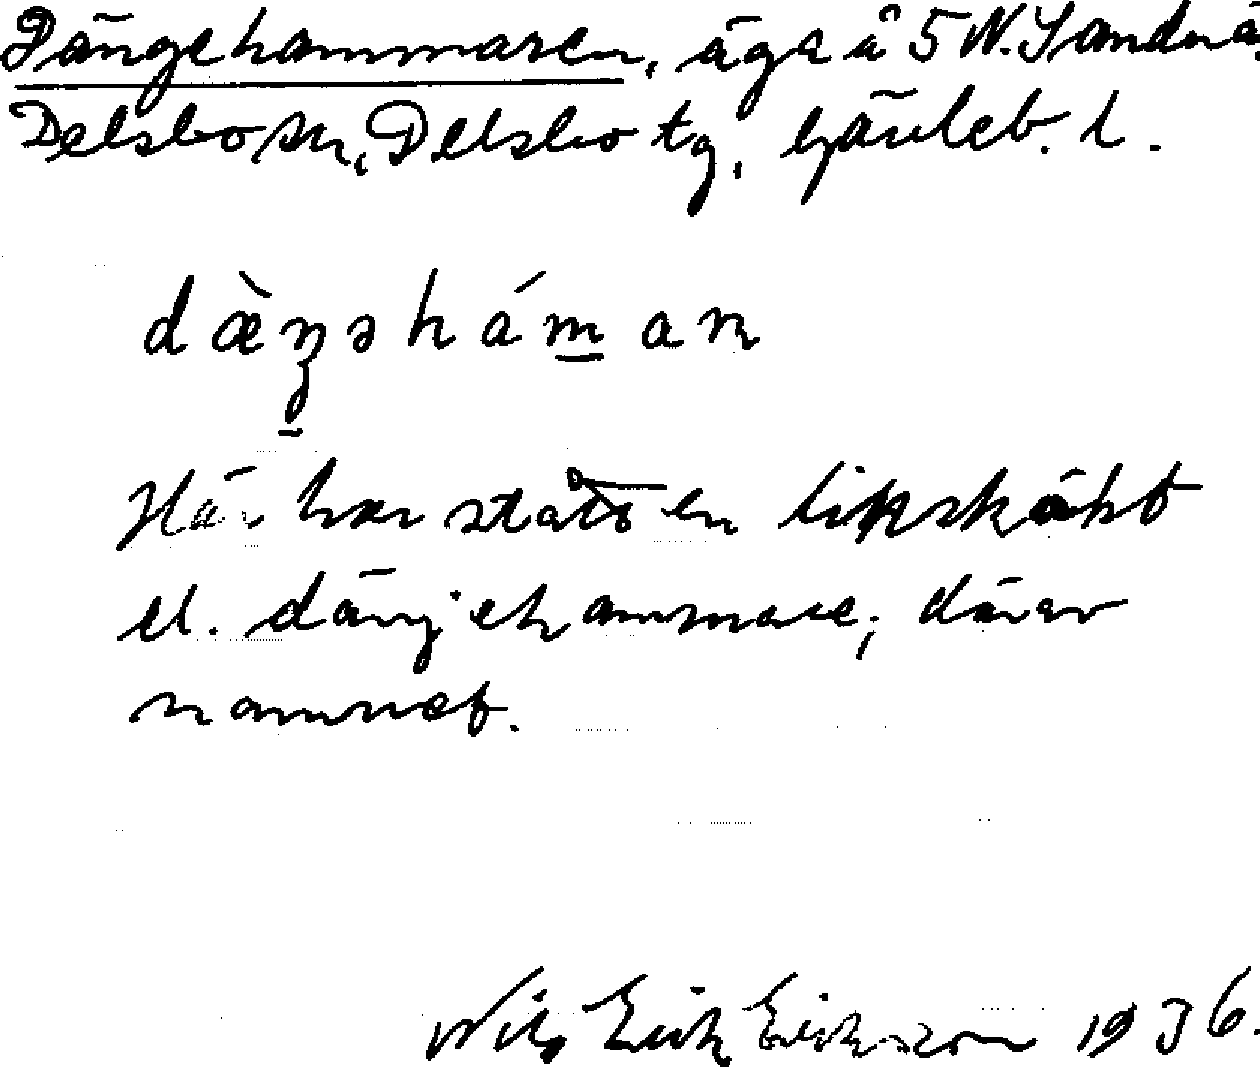 Dängehammaren, ägr å 5 N. Sandnä,
Delsbo sn, Delsbo tg, Gävleb. l.
dæ̀ŋəháman
Här har stått en
el. dängjehammare; därav
namnet.
Nils Erik Eriksson 1936.